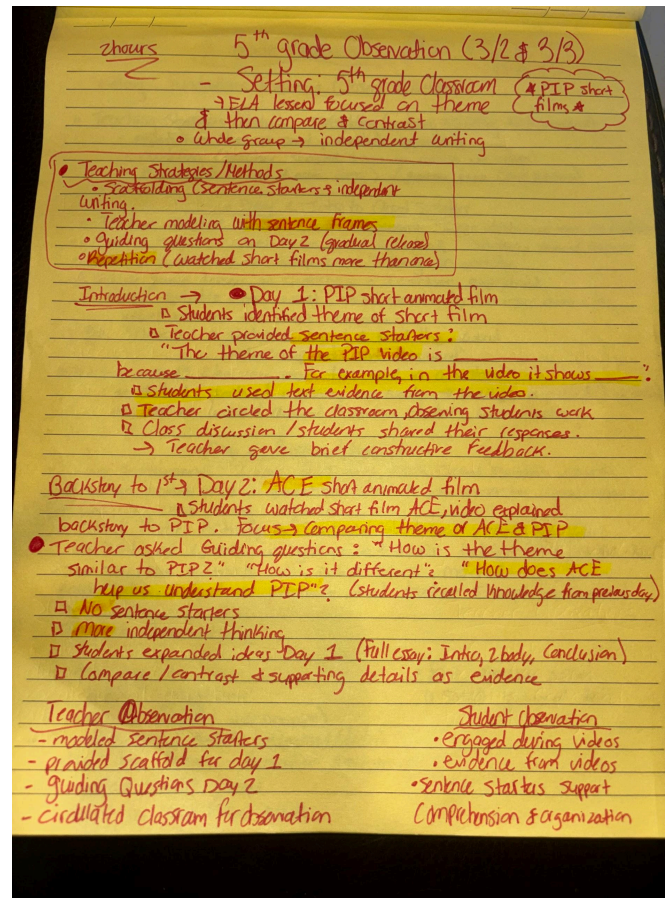 2hours
5th grade Observation (3/2 & 3/3)
- Setting: 5th grade Classroom
* PIP short
films *
→ ELA lesson focused on theme
& then compare & contrast
• whole group → independent writing
• Teaching Strategies/Methods
• Scaffolding (sentence starters & independent
writing.
• Teacher modeling with sentence frames
• Guiding questions on Day 2 (gradual release)
• Repetition (watched short films more than once)
Introduction → • Day 1: PIP short animated film
□ Students identified theme of short film
□ Teacher provided sentence starters:
"The theme of the PIP video is ________
because ________. For example, in the video it shows ____".
□ Students used text evidence from the video.
□ Teacher circled the classroom, observing students work
□ Class discussion / students shared their responses.
→ Teacher gave brief constructive feedback.
Backstory to 1st → Day 2: ACE short animated film
□ Students watched short film ACE, video explained
backstory to PIP. Focus → comparing theme of ACE & PIP
• Teacher asked Guiding questions: "How is the theme
similar to PIP?" "How is it different"? "How does ACE
help us understand PIP"? (students recalled knowledge from previous day)
□ No sentence starters
□ More independent thinking
□ Students expanded ideas Day 1 (Full essay: Intro, 2 body, Conclusion)
□ Compare / contrast & supporting details as evidence
Teacher Observation
- modeled sentence starters
- provided scaffold for day 1
- guiding Questions Day 2
- circulated classroom for observation
Student Observation
• engaged during videos
• evidence from videos
• sentence starters support
Comprehension & organization